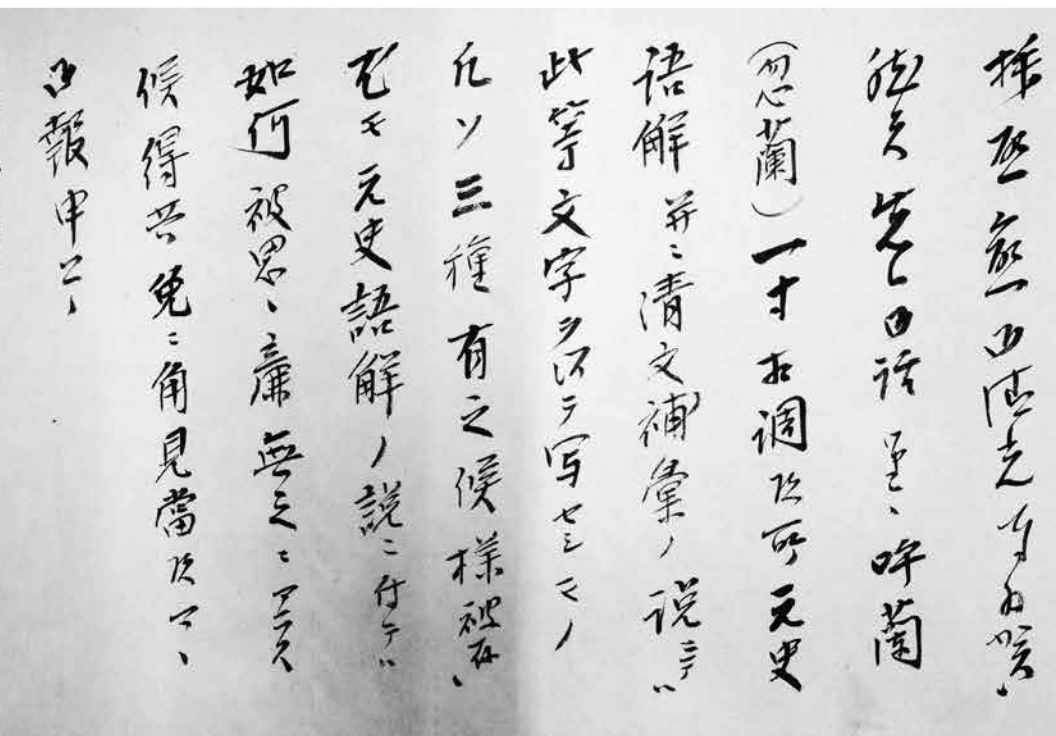 拝啓 愈御清光奉賀候
然者先日御話ノ呼蘭
(忽蘭)一寸相調候所元史
語解并ニ清文補彙ノ説ニテハ
此等文字ヲ以テ写セシモノ
凡ソ三種有之候様被存候
尤モ元史語解ノ説ニ付テハ
如何被思候廉無之ニアラス
候得共兎ニ角見當候マヽ
御報申上候